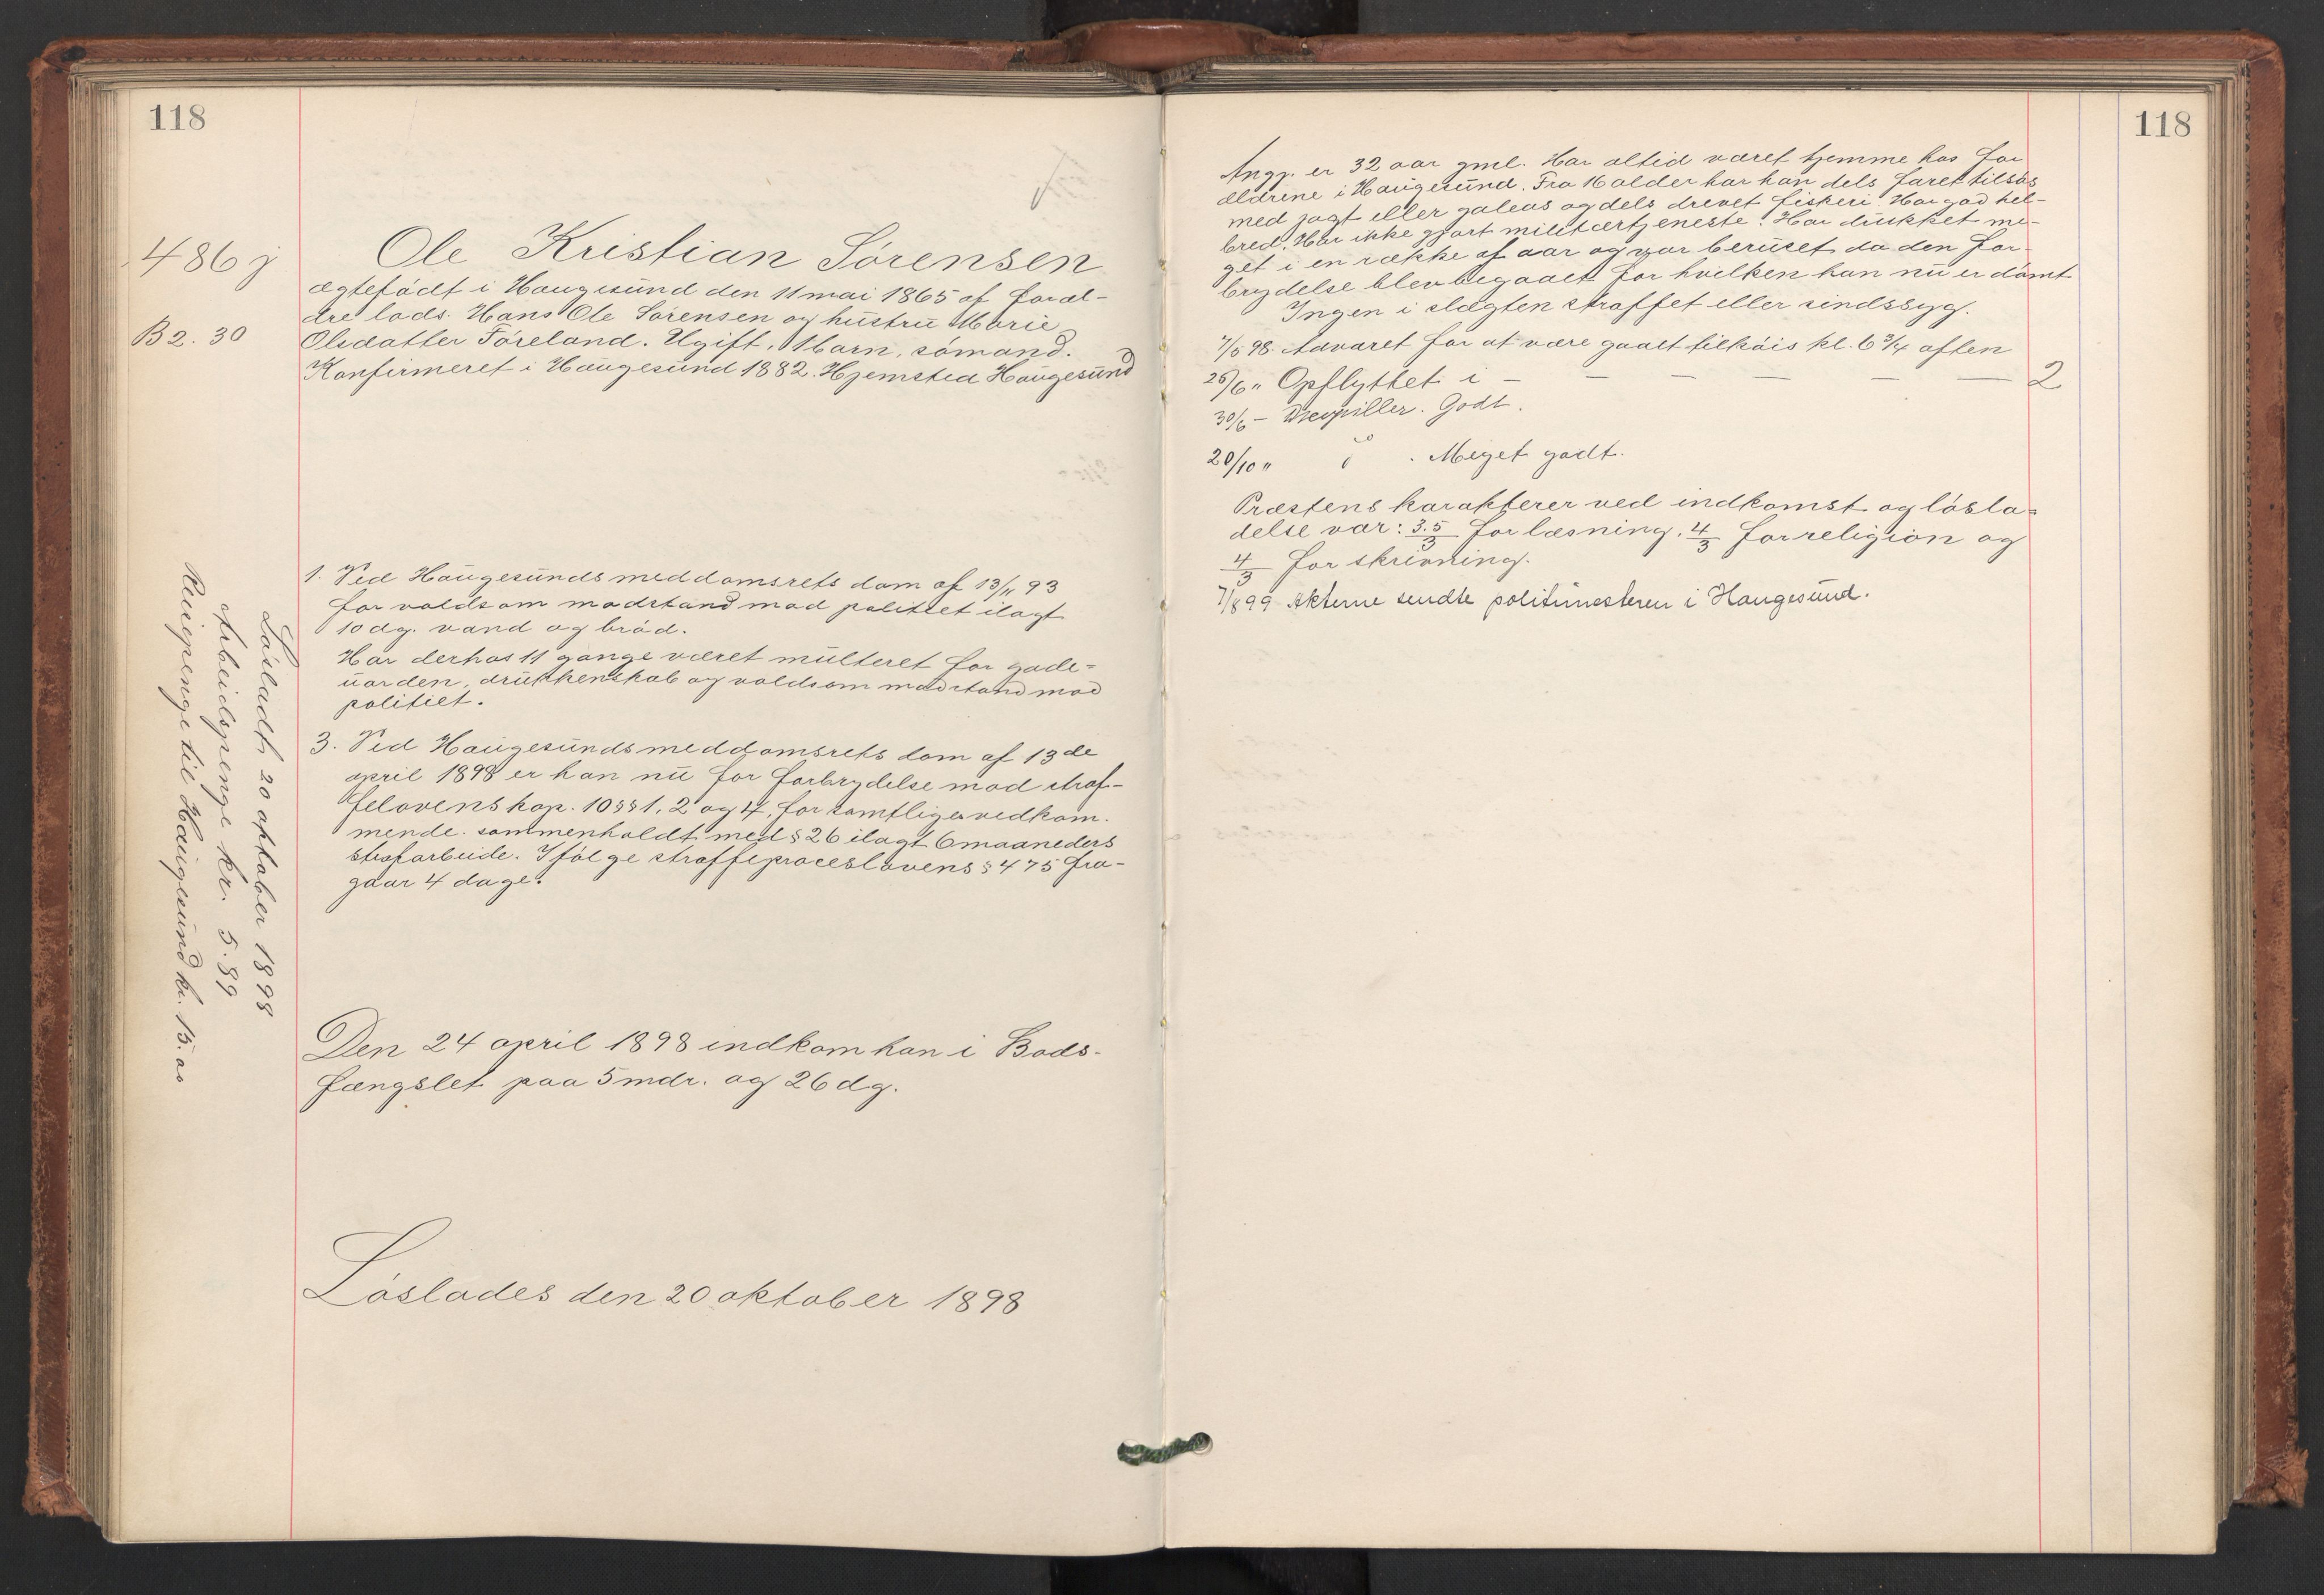 118
486 j
B 2. 30
Ole Kristian Sørensen
ægtefødt i Haugesund den 11 mai 1865 af foræl-
dre lods. Hans Ole Sørensen og hustru Marie
Olsdatter Føreland. Ugift, 1 barn, sømand.
Konfirmeret i Haugesund 1882. Hjemsted Haugesund
1. Ved Haugesunds meddomsrets dom af 13/11 93
for voldsom modstand mod politiet ilagt
10 dg. vand og brød.
Har derhos 11 gange været multeret for gade-
uorden, drukkenskab og voldsom modstand mod
politiet.
3. Ved Haugesunds meddomsrets dom af 13de
april 1898 er han nu for forbrydelse mod straf-
felovens kap. 10 §§ 1, 2 og 4, for samtliges vedkom.
mende. sammenholdt med § 26 ilagt 6 maaneders
strafarbeide. Ifølge straffeproceslovens § 475 fra-
gaar 4 dage.
Den 24 april 1898 indkom han i Bods-
fængslet paa 5 mdr. og 26 dg.
Løslades den 20 oktober 1898
Løsladt 20 oktober 1898
Arbeidspenge kr. 5.89
Reisepenge til Haugesund kr. 15.00
118
Angj. er 32 aar gml. Har altid været hjemme hos for
ældrene i Haugesund. Fra 16 alder har han dels faret tilsøs
med jagt eller galeas og dels drevet fiskeri. Har god hel-
bred. Har ikke gjort militærtjeneste. Har drukket me-
get i en række af aar og var beruset da den for-
brydelse blev begaaet for hvilken han nu er dømt
Ingen i slægten straffet eller sindssyg.
7/5 98. Advaret for at være gaaet tilkøis kl. 6 3/4 aften
26/6 " Opflyttet i — — — — — — 2
30/6 - Drevpiller. Godt.
20/10 " do . Meget godt.
Præstens karakterer ved indkomst og løsla=
delse var: 3.5/3 for læsning. 4/3 for religion og
4/3 for skrivning.
7/8 99 Akterne sendte politimesteren i Haugesund.